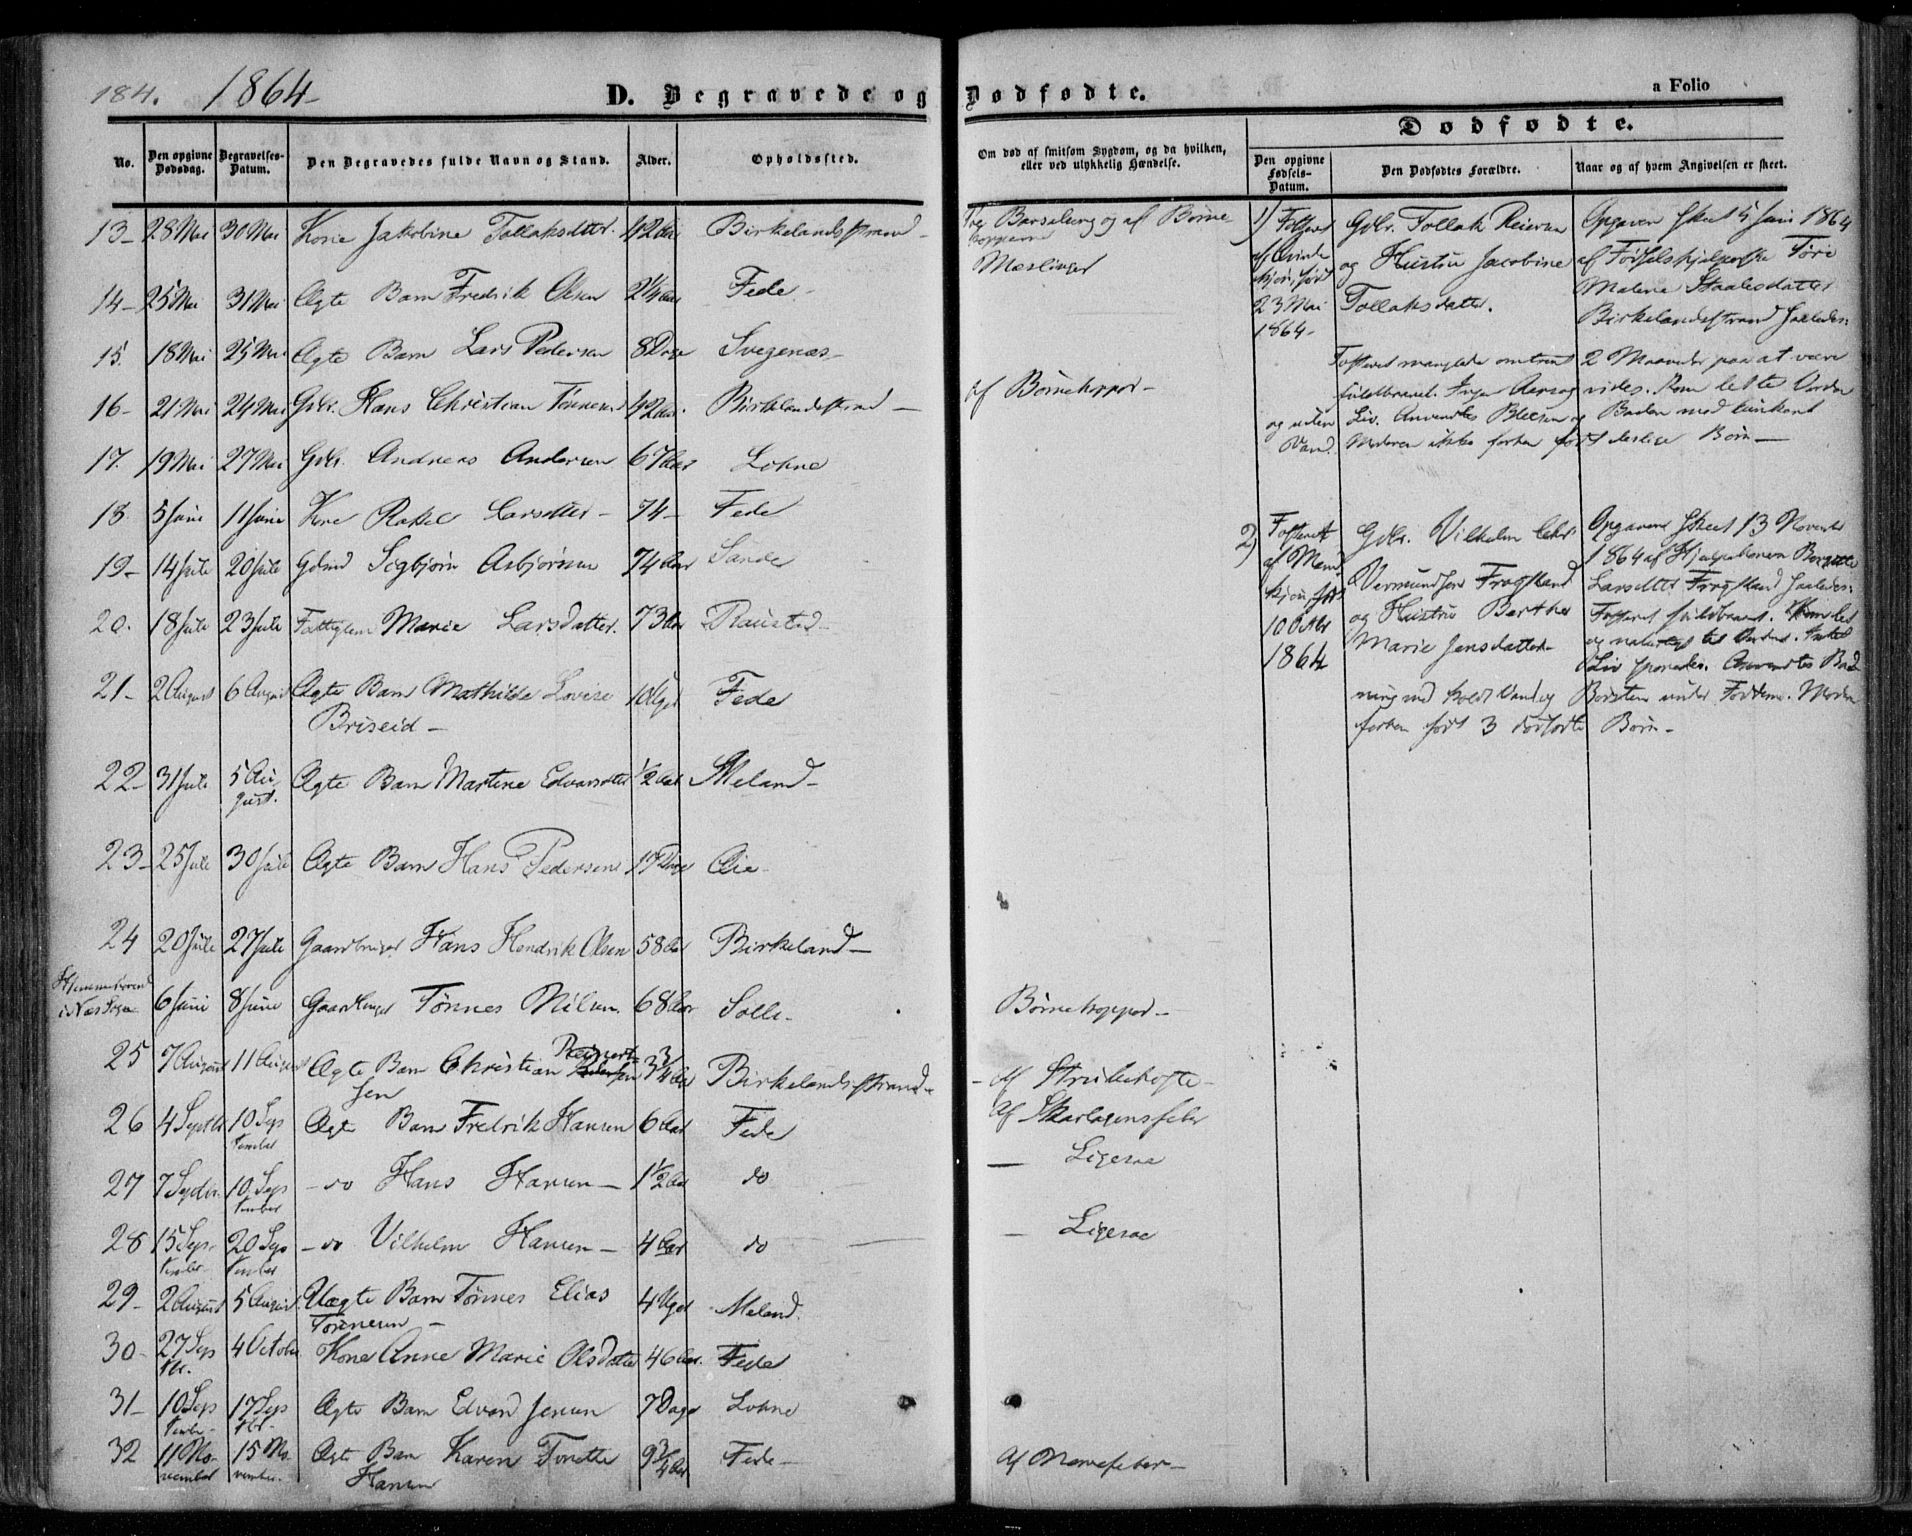 184. 1864
D. Begravede og Dødfødte.
a Folio
No.
Den opgivne Dødsdag.
Begravelses-Datum.
Den Begravedes fulde Navn og Stand.
Alder.
Opholdssted.
Om død af smitsom Sygdom, og da hvilken, eller ved ulykkelig Hændelse.
Dødfødte.
Den opgivne Fødsels-Datum.
Den Dødfødtes Forældre.
Naar og af hvem Angivelsen er skeet.
13- 28 Mai 30 Mai Kone Jakobine Tollaksdatter 42 Aar Birkelandsstrand -
Barselseng og af Børnekopperne
14- 25 Mai 31 Mai Ægte Barn Fredrik Olsen 2 1/4 Aar Fede - Mæslinger
15. 18 Mai 25 Mai Ægte Barn Lars Pedersen 8 Dage Svegenæs -
16- 21 Mai 24 Mai Gdbr. Hans Christian Tønnesen 42 Aar. Birkelandsstrand - af Børnekopper -
17. 19 Mai 27 Mai Gdbr. Andreas Andersen 67 Aar Lohne
18. 5 Juni 11 Juni Kone Rakel Larsdatter - 74 - Fede
19- 14 Juli 20 Juli Gdmd Sigbjørn Asbjørnsen 74 Aar Sande
20. 18 Juli 23 Juli Fattiglem Marie Larsdatter. 73 Aar Raustad -
21- 2 August 6 August Ægte Barn Mathilde Lovise 10 Uger Fede
Briseid -
22- 31 Juli 5 August. Ægte Barn Martine Edvarsdatter 1/2 Aar Meland -
23- 25 Juli 30 Juli Ægte Barn Hans Pedersen 17 Dage
24 20 Juli 27 Juli Gaardbruger Hans Hendrik Olsen 58 Aar Birkeland -
Hjemmehørende
i Næs Sogn 6 Juni 8 Juni Tønnes Nilsen 68 Aar Solli - Børnekopper -
25 7 August 11 August Ægte Barn Christian Reinert- 3 3/4 Aar Birkelandsstrand - - Af Strubehoste -
sen
26 4 Septbr 10 September Ægte Barn Fredrik Hansen 6 Aar Fede Af Skarlagensfeber
27 7 Septbr. 10 September - do Hans Hansen - 1 1/2 Aar do - Ligesaa
28 15 September 20 September - do Vilhelm Hansen - 4 Aar do - Ligesaa
29- 2 August 5 August Uægte Barn Tønnes Elias 4 Uger Meland.
Tønnesen -
30- 27 Septbr. 4 October Kone Anne Marie Olsdatter 46 Aar. Fede
31- 10 September 17 Septbr. Ægte Barn Edvard Jensen 7 Dage Lohne
32 11 November 15 November Ægte Barn Karen Tonette 9 3/4 Aar Fede - Af Nervefeber -
Hansen
1) Fosteret af Qvindekjøn, født 23 Mai 1864 -
Gdbr. Tollak Reiersen og Hustru Jacobine Tollaksdatter.
Opgaven skeet 5 Juni 1864
af Fødselshjelperske Tøri
Malene Staalesdatter
Birkelandsstrand saaledes:
Fosteret manglede omtrent 2 Maaneder paa at være
fuldbaaret.
og uden Liv. Anvendtes
Vand. Moderen ikke forhen født deslige Børn -
2) Fosteret af Mandkjøn, født 10 Octbr 1864
Gdbr. Vilhelm Chr Vermundsen Frøysland og Hustru Berthe Marie Jensdatter -
Opgaven skeet 13 November
1864 af Hjelpekonen Bergitte
Larsdatter Frøysland saaledes:
Fosteret fuldbaaret.
Liv sporedes. Anvendtes Bad-
ning med koldt Vand og Børsten under Fødderne. Moderen
forhen født 3 dødfødte Børn -